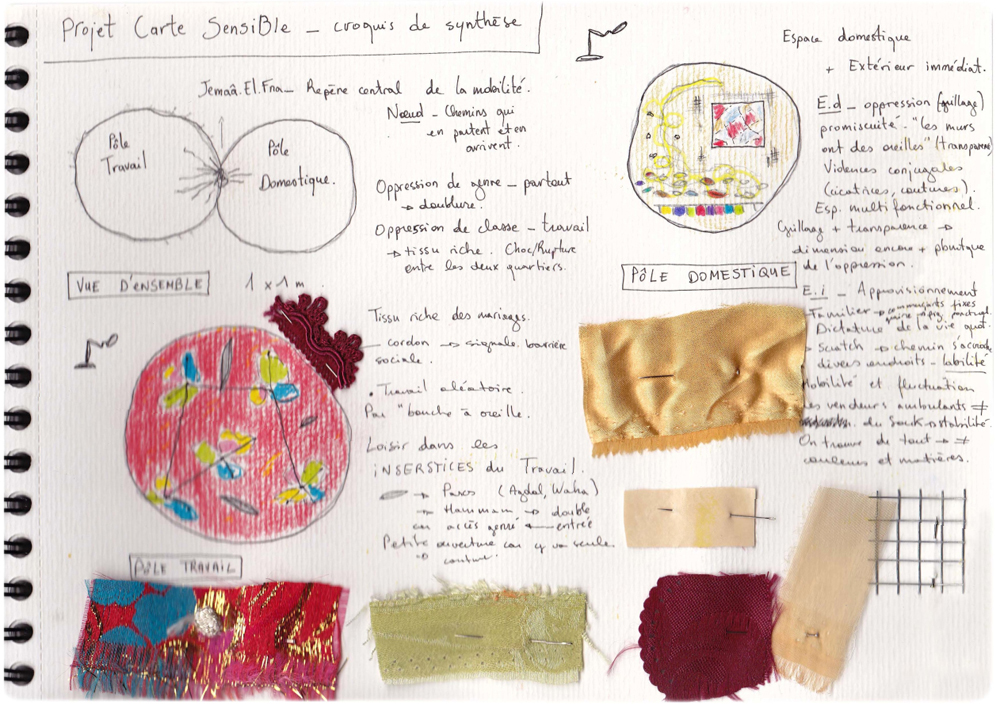 Projet Carte SensiBle _ croquis de synthèse
Jemaâ.El.Fna_ Repère central de la mobilité.
Nœud _ Chemins qui
en partent et en
arrivent.
Pôle
Travail
Pôle
Domestique.
Oppression de genre _ partout
→ doublure.
Oppression de classe _ travail
→ tissu riche. Choc/Rupture
entre les deux quartiers.
VUE D'ENSEMBLE
1 x 1 m.
Tissu riche des mariages.
cordon → signale barrière
sociale.
. Travail aléatoire.
Par "bouche à oreille.
Loisir dans les
INSERSTICES du Travail.
→ Parcs (Agdal, Waha)
→ Hammam → double
car accès genré ← entrée
Petite ouverture car y va seule.
PÔLE TRAVAIL
Espace domestique
+ Extérieur immédiat.
E.d _ oppression (grillage)
promiscuité. "les murs
ont des oreilles" (transparent)
Violences conjugales
(cicatrices, coutures).
Esp. multi fonctionnel.
Grillage + transparence →
dimension encore + physique
de l'oppression.
PÔLE DOMESTIQUE
E.i _ Approvisionnement
Familier → commerçants fixes
Dictature de la vie quot.
→ Scratch → chemin s'accroche
divers endroits _ labilité
Mobilité et fluctuation
des vendeurs ambulants ≠
du Souk → stabilité.
On trouve de tout → ≠
couleurs et matières.